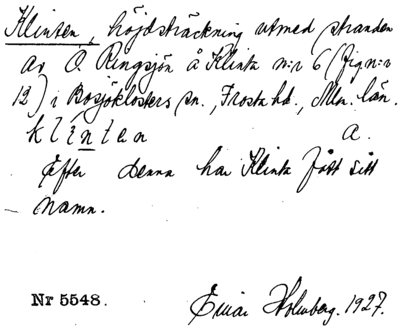 Klinten, höjdsträckning utmed stranden
av Ö. Ringsjön å Klinta n:r 6 (fig n:r
12) i Bosjöklosters sn., Frosta hd., Mlm. län.
klinten a.
Efter denna har Klinta fått sitt
namn.
Nr 5548. Einar Holmberg. 1927.